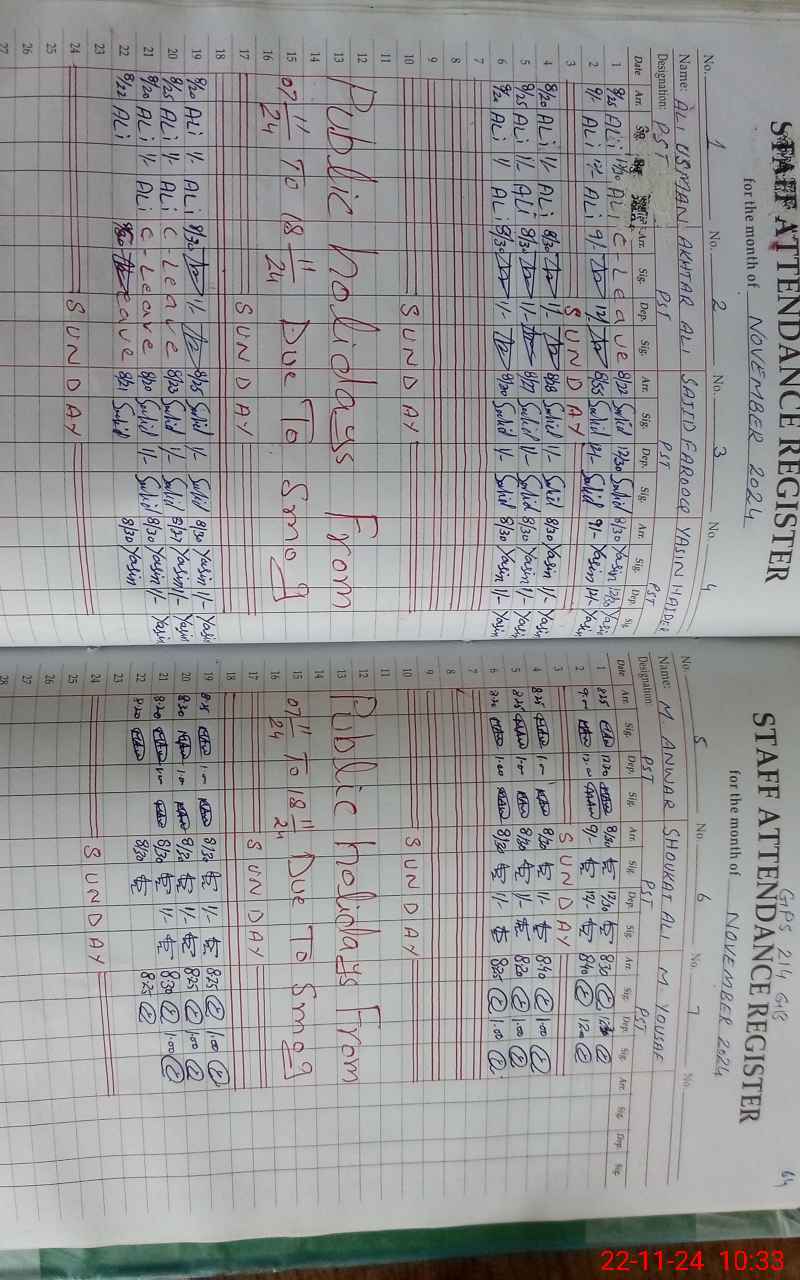 STAFF ATTENDANCE REGISTER
for the month of NOVEMBER 2024
No. 1 No. 2 No. 3 No. 4
Name: ALI USMAN AKHTAR ALI SAJID FAROOQ YASIN HAIDER
Designation: PST PST PST PST
Date Arr. Sig. Arr. Sig. Dep. Sig. Arr. Sig. Dep. Sig. Arr. Sig. Dep.
1 8/25 ALi 12/30 ALi C-Leave 8/22 Sajid 12/30 Sajid 8/30 Yasin 12/30 Yasin
2 9/- ALi 12/- ALi 9/- 12/- 8/55 Sajid 12/- Sajid 9/- Yasin 12/- Yasin
3 SUNDAY
4 8/20 ALi 1/- ALi 8/30 1/- 8/18 Sajid 1/- Sajid 8/30 Yasin 1/- Yasin
5 8/25 ALi 1/- ALi 8/30 1/- 8/17 Sajid 1/- Sajid 8/30 Yasin 1/- Yasin
6 8/20 ALi 1/- ALi 8/30 1/- 8/20 Sajid 1/- Sajid 8/30 Yasin 1/- Yasin
7
8
9
10 SUNDAY
11
12
13 Public holidays From
14
15 07 11/24 To 18 11/24 Due To Smog
16
17 SUNDAY
18
19 8/20 ALi 1/- ALi 8/30 1/- 8/25 Sajid 1/- Sajid 8/30 Yasin 1/- Yasin
20 8/25 ALi 1/- ALi C-Leave 8/23 Sajid 1/- Sajid 8/27 Yasin 1/- Yasin
21 8/20 ALi 1/- ALi C-Leave 8/20 Sajid 1/- Sajid 8/30 Yasin 1/- Yasin
22 8/22 ALi 8/21 Sajid 8/30 Yasin
23
24 SUNDAY
25
26
27
GPS 214 GB
64
STAFF ATTENDANCE REGISTER
for the month of NOVEMBER 2024
No. 5 No. 6 No. 7 No.
Name: M ANWAR SHOUKAT ALI M YOUSAF
Designation: PST PST PST
Date Arr. Sig. Dep. Sig. Arr. Sig. Dep. Sig. Arr. Sig. Dep. Sig. Arr. Sig. Dep. Sig.
1 8:25 12:30 8/30 12/30 8:30 12:30
2 9:00 12:00 9/- 12/- 8:40 12:00
3 SUNDAY
4 8:25 1:00 8/20 1/- 8:40 1:00
5 8:25 1:00 8/20 1/- 8:20 1:00
6 8:20 1:00 8/20 1/- 8:25 1:00
7
8
9
10 SUNDAY
11
12
13 Public holidays From
14
15 07 11/24 To 18 11/24 Due To Smog
16
17 SUNDAY
18
19 8:25 1:00 8/20 1/- 8:25 1:00
20 8:30 1:00 8/20 1/- 8:25 1:00
21 8:20 1:00 8/20 1/- 8:30 1:00
22 8:20 8/20 8:25
23
24 SUNDAY
25
26
27
28
22-11-24 10:33